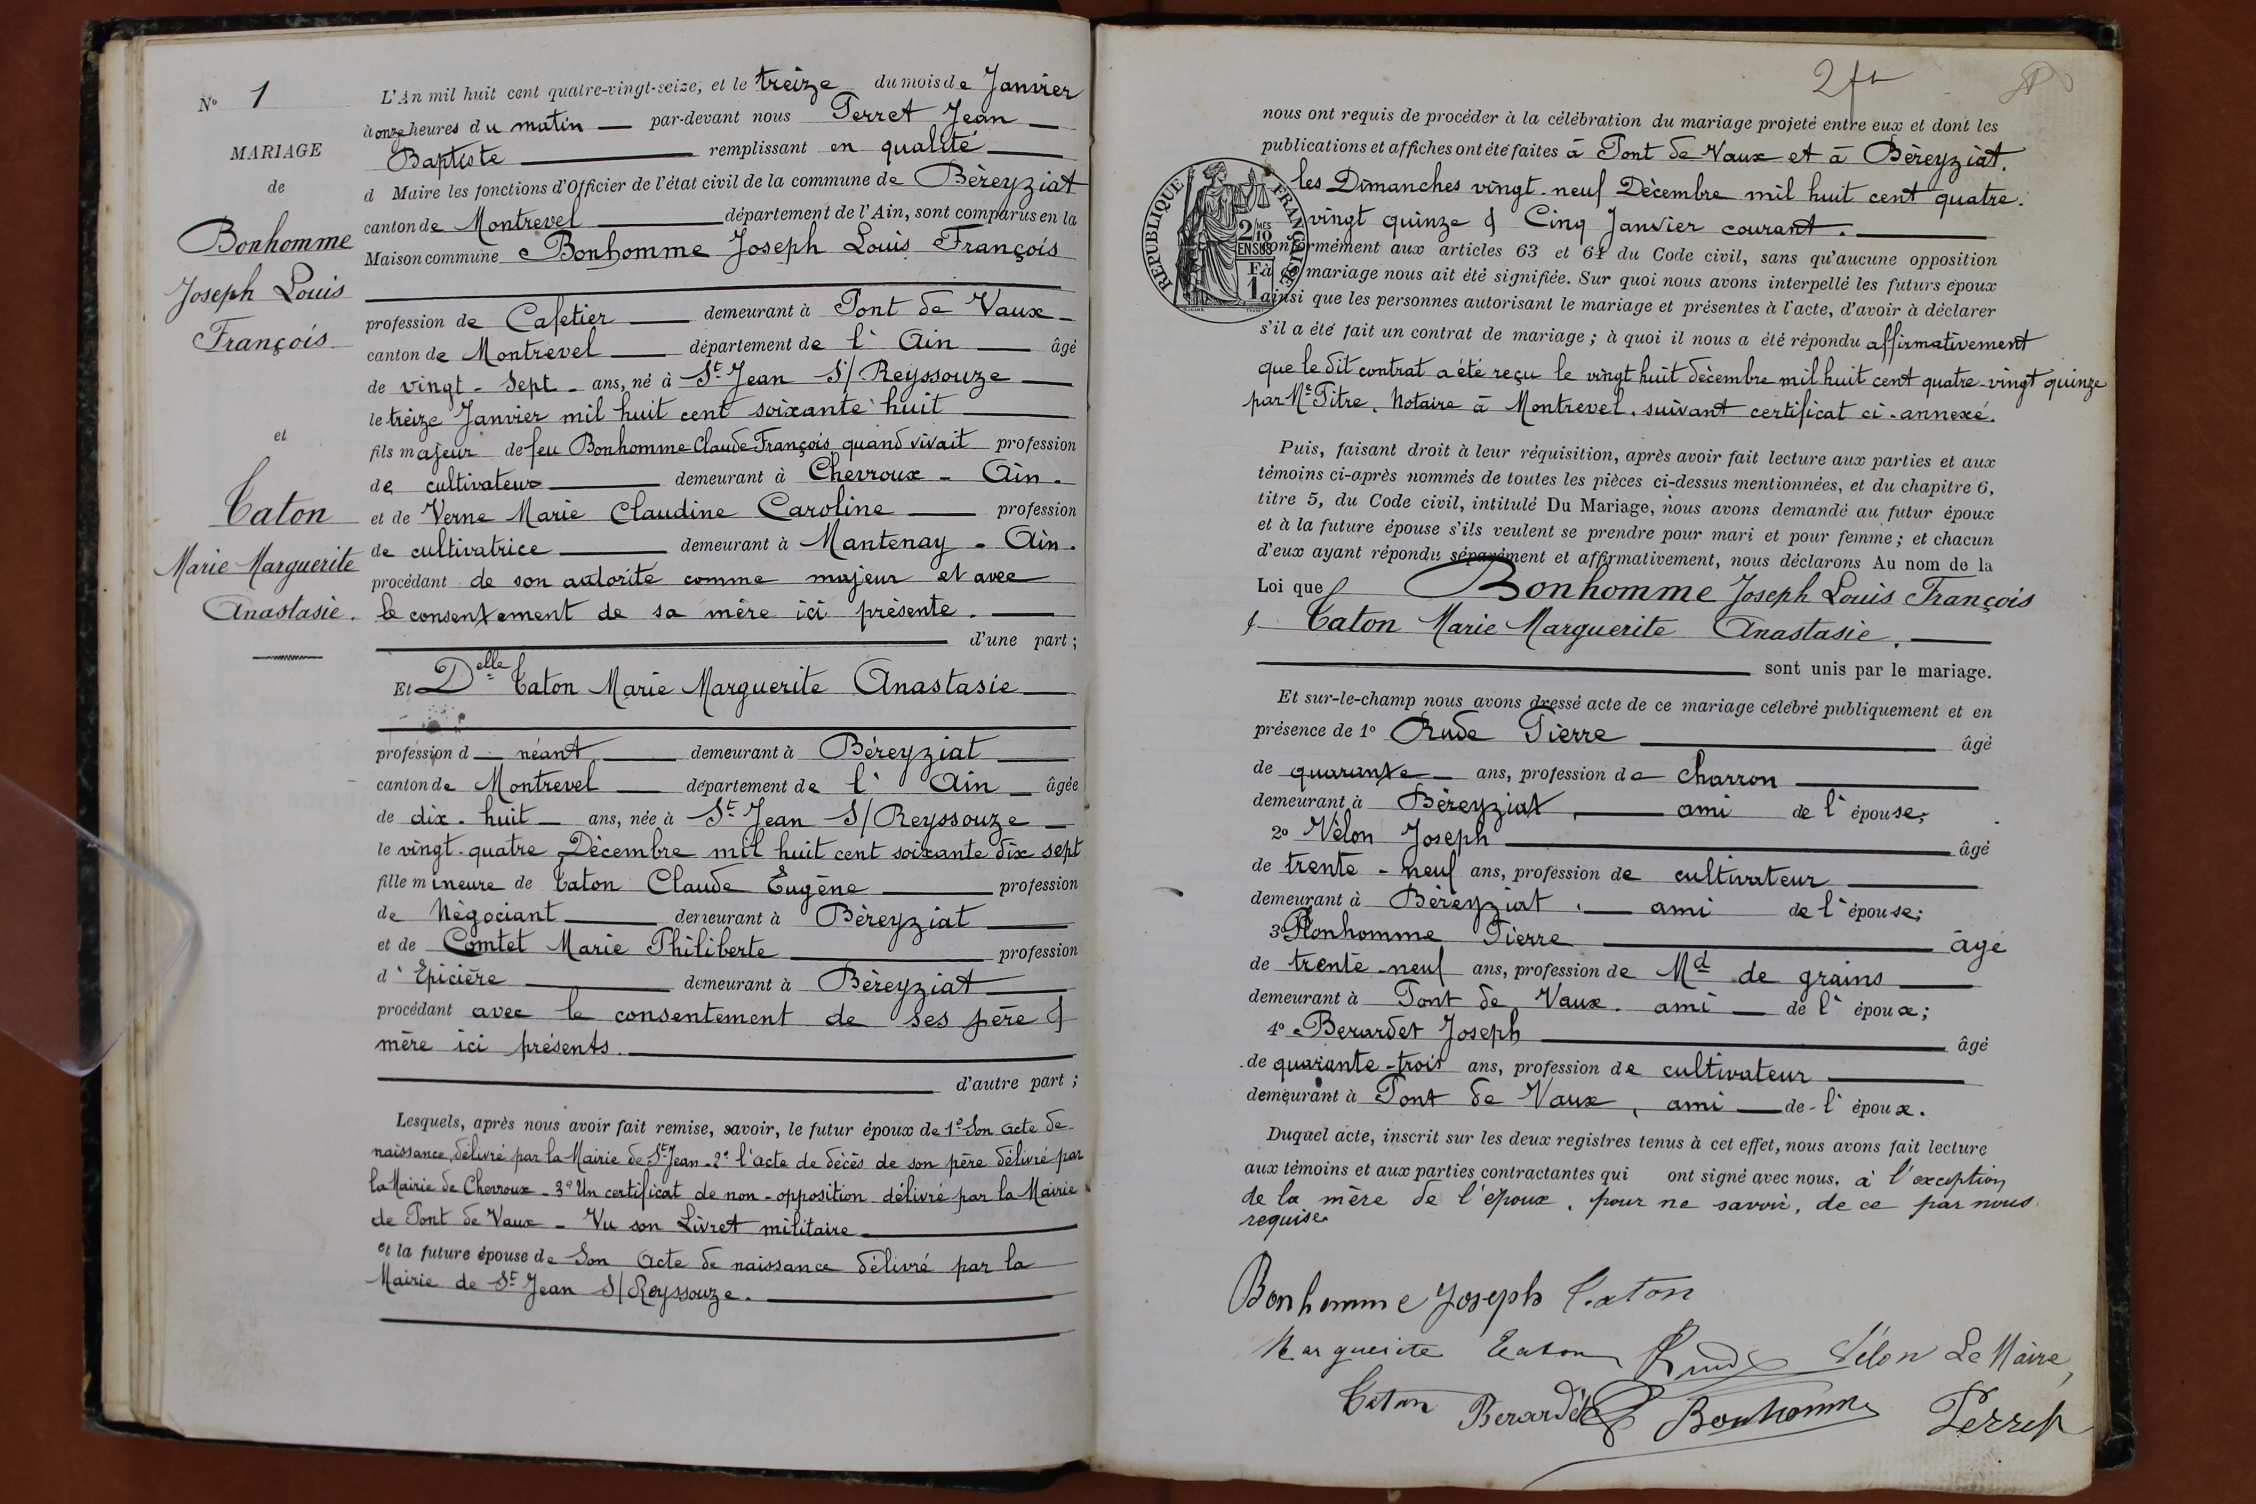 N° 1
MARIAGE
de
Bonhomme
Joseph Louis
François
et
Caton
Marie Marguerite
Anastasie.
L'An mil huit cent quatre-vingt-seize, et le treize du mois de Janvier
à onze heures du matin par-devant nous Perret Jean
Baptiste remplissant en qualité
d Maire les fonctions d'Officier de l'état civil de la commune de Béreyziat
canton de Montrevel département de l'Ain, sont comparus en la
Maison commune Bonhomme Joseph Louis François
profession de Cafetier demeurant à Pont de Vaux
canton de Montrevel département de l'Ain âgé
de vingt-sept ans, né à St Jean S/ Reyssouze
le treize Janvier mil huit cent soixante huit
fils majeur de feu Bonhomme Claude François quand vivait profession
de cultivateur demeurant à Chevroux - Ain.
et de Verne Marie Claudine Caroline profession
de cultivatrice demeurant à Mantenay - Ain.
procédant de son autorité comme majeur et avec
le consentement de sa mère ici présente.
d'une part;
Et Delle Caton Marie Marguerite Anastasie
profession d néant demeurant à Béreyziat
canton de Montrevel département de l'Ain âgée
de dix-huit ans, née à St Jean S/ Reyssouze
le vingt-quatre Décembre mil huit cent soixante dix sept
fille mineure de Caton Claude Eugène profession
de Négociant demeurant à Béreyziat
et de Comtet Marie Philiberte profession
d'Epicière demeurant à Béreyziat
procédant avec le consentement de ses père &
mère ici présents.
d'autre part;
Lesquels, après nous avoir fait remise, savoir, le futur époux de 1° Son acte de
naissance, délivré par la Mairie de St Jean - 2° l'acte de décès de son père délivré par
la Mairie de Chevroux - 3° Un certificat de non-opposition délivré par la Mairie
de Pont de Vaux - Vu son Livret militaire
et la future épouse de Son Acte de naissance délivré par la
Mairie de St Jean S/ Reyssouze.
nous ont requis de procéder à la célébration du mariage projeté entre eux et dont les
publications et affiches ont été faites à Pont de Vaux et à Béreyziat.
les Dimanches vingt-neuf Décembre mil huit cent quatre-
vingt quinze & Cinq Janvier courant.
RÉPUBLIQUE FRANÇAISE
2/10 MES
EN SUS
1
conformément aux articles 63 et 64 du Code civil, sans qu'aucune opposition
mariage nous ait été signifiée. Sur quoi nous avons interpellé les futurs époux
ainsi que les personnes autorisant le mariage et présentes à l'acte, d'avoir à déclarer
s'il a été fait un contrat de mariage; à quoi il nous a été répondu affirmativement
que le dit contrat a été reçu le vingt huit décembre mil huit cent quatre-vingt quinze
par Me Pitre, Notaire à Montrevel, suivant certificat ci-annexé.
Puis, faisant droit à leur réquisition, après avoir fait lecture aux parties et aux
témoins ci-après nommés de toutes les pièces ci-dessus mentionnées, et du chapitre 6,
titre 5, du Code civil, intitulé Du Mariage, nous avons demandé au futur époux
et à la future épouse s'ils veulent se prendre pour mari et pour femme; et chacun
d'eux ayant répondu séparément et affirmativement, nous déclarons Au nom de la
Loi que Bonhomme Joseph Louis François
& Caton Marie Marguerite Anastasie.
sont unis par le mariage.
Et sur-le-champ nous avons dressé acte de ce mariage célébré publiquement et en
présence de 1° Rude Pierre âgé
de quarante ans, profession de charron
demeurant à Béreyziat, ami de l'épouse;
2° Vélon Joseph âgé
de trente-neuf ans, profession de cultivateur
demeurant à Béreyziat, ami de l'épouse;
3° Bonhomme Pierre âgé
de trente-neuf ans, profession de Md de grains
demeurant à Pont de Vaux, ami de l'époux;
4° Berardet Joseph âgé
de quarante-trois ans, profession de cultivateur
demeurant à Pont de Vaux, ami de l'époux.
Duquel acte, inscrit sur les deux registres tenus à cet effet, nous avons fait lecture
aux témoins et aux parties contractantes qui ont signé avec nous, à l'exception
de la mère de l'époux, pour ne savoir, de ce par nous
requise
Bonhomme Joseph Caton
Marguerite Caton Rude Vélon Le Maire,
Caton Berardet Bonhomme Perret